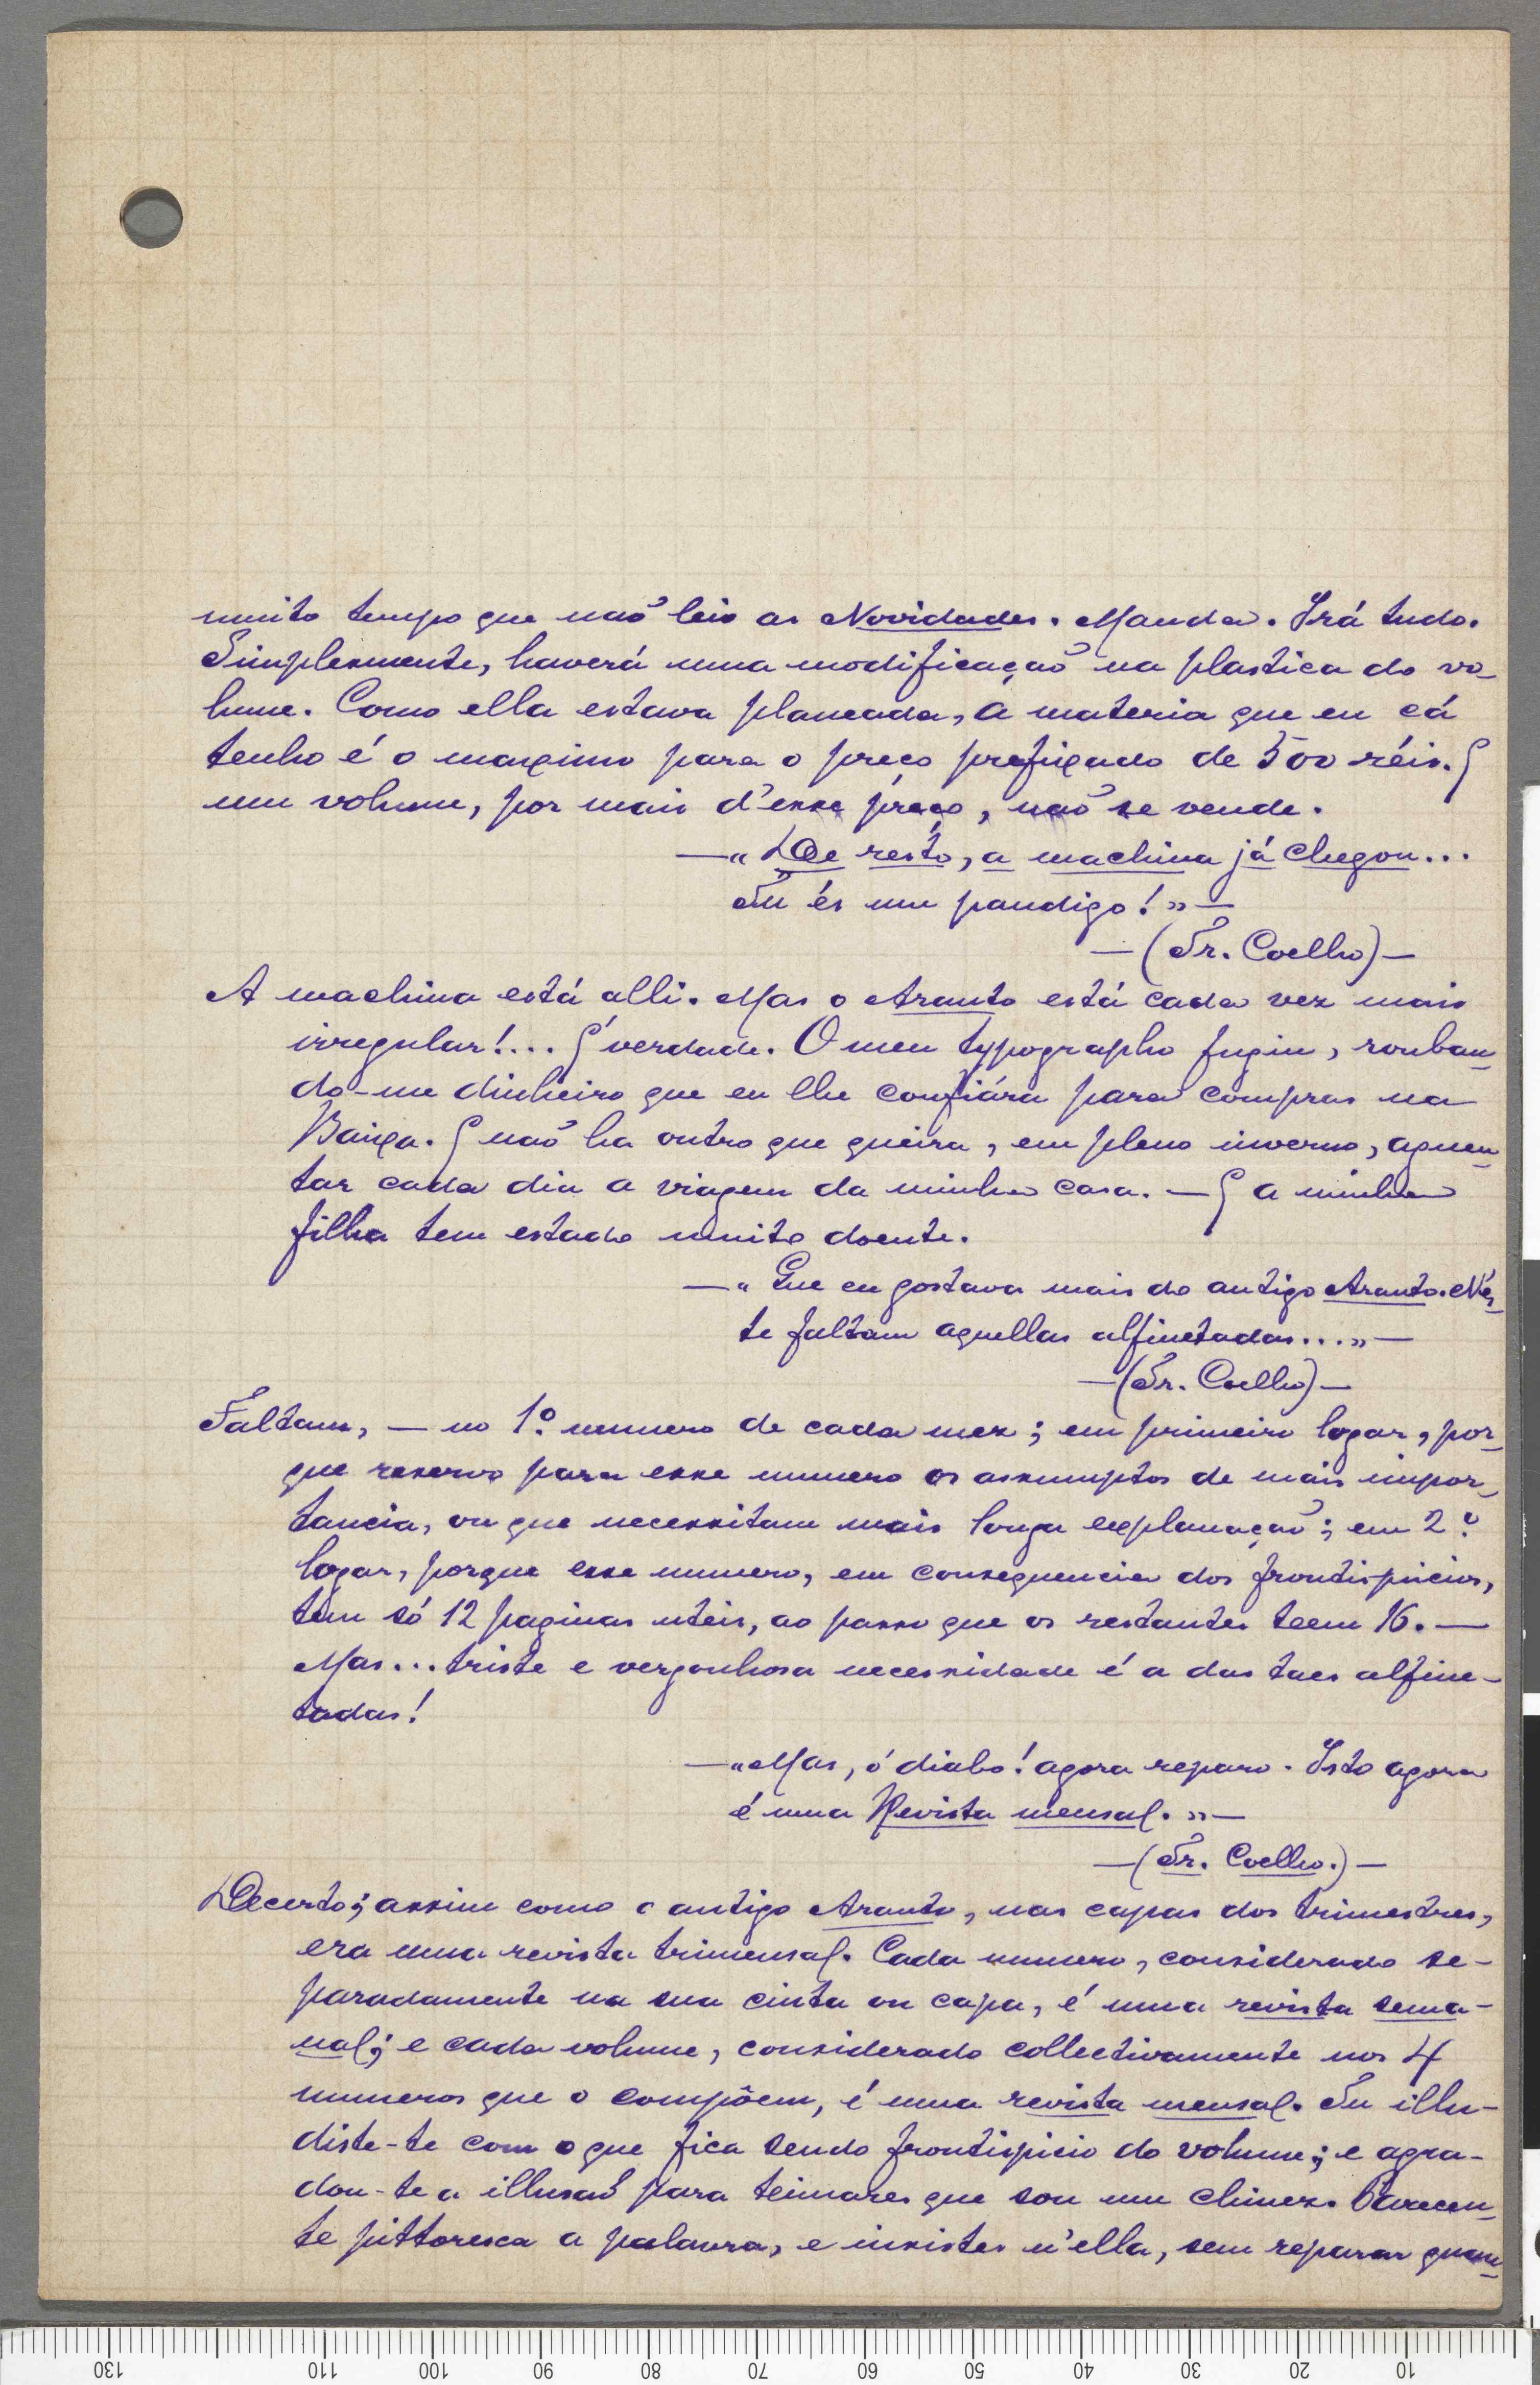 muito tempo que não leio as Novidades. Manda. Irá tudo.
Simplesmente, haverá uma modificação na plastica do vo-
lume. Como ella estava planeada, a materia que eu cá
tenho é o maximo para o preço prefixado de 500 réis. E
um volume, por mais d'esse preço, não se vende.
—«De resto, a machina já chegou...
Tu és um pandigo!»—
—(Tr. Coelho)—
A machina está alli. Mas o Arauto está cada vez mais
irregular!... É verdade. O meu typographo fugiu, rouban-
do-me dinheiro que eu lhe confiára para compras na
Baixa. E não ha outro que queira, em pleno inverno, aguen-
tar cada dia a viagem da minha casa. — E a minha
filha tem estado muito doente.
—«Que eu gostava mais do antigo Arauto. Nes-
te faltam aquellas alfinetadas...»—
—(Tr. Coelho)—
Faltam, — no 1.º numero de cada mez; em primeiro logar, por-
que reservo para esse numero os assumptos de mais impor-
tancia, ou que necessitam mais longa explanação; em 2.º
logar, porque esse numero, em consequencia dos frontispicios,
tem só 12 paginas uteis, ao passo que os restantes teem 16. —
Mas... triste e vergonhosa necessidade é a das taes alfine-
tadas!
—«Mas, ó diabo! agora reparo. Isto agora
é uma Revista mensal.»—
—(Tr. Coelho.)—
Decerto; assim como o antigo Arauto, nas capas dos trimestres,
era uma revista trimensal. Cada numero, considerado se-
paradamente na sua cinta ou capa, é uma revista sema-
nal; e cada volume, considerado collectivamente nos 4
numeros que o compõem, é uma revista mensal. Tu illu-
diste-te com o que fica sendo frontispicio do volume; e agra-
dou-te a illusão para teimares que sou um chinez. Parecen-
te pittoresca a palavra, e insistes n'ella, sem reparar quam-
130 110 100 90 80 70 60 50 40 30 20 10